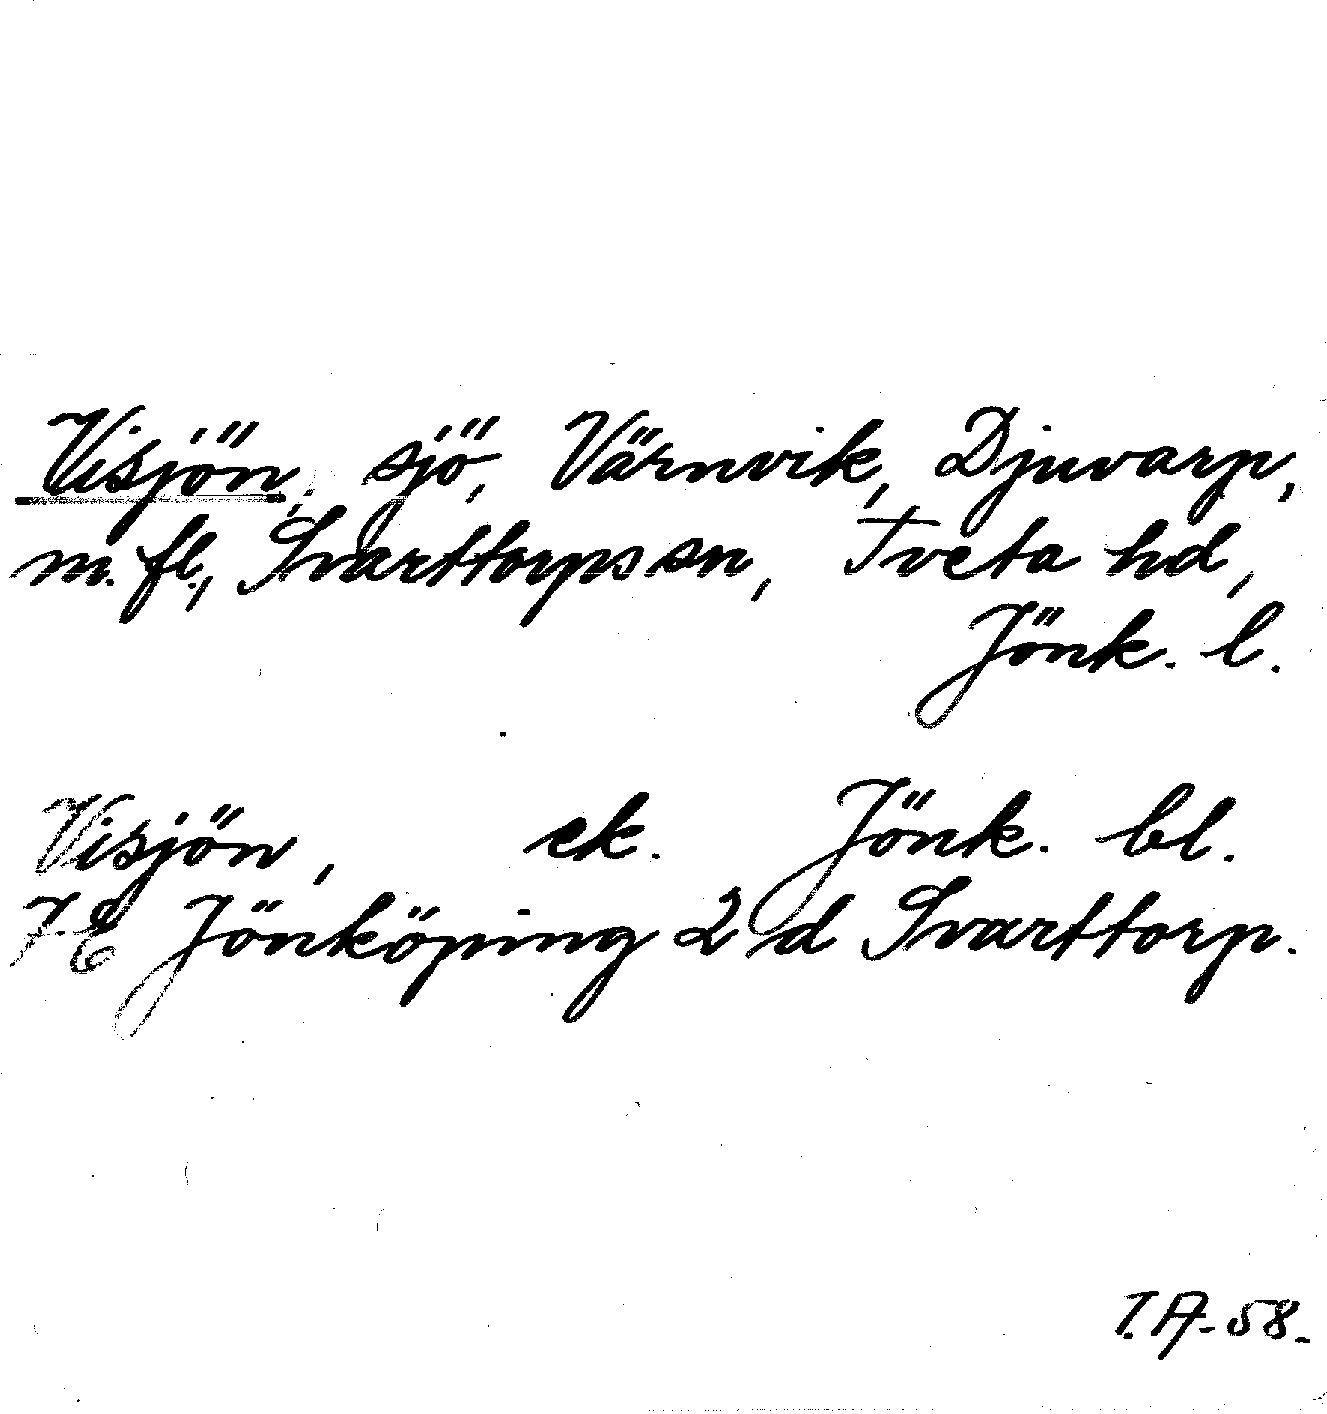 Visjön, sjö, Värnvik, Djuvarp,
m. fl., Svarttorps sn, Tveta hd,
Jönk. l.
Visjön, ek. Jönk. bl.
7E Jönköping 2 d Svarttorp.
I.A-58.